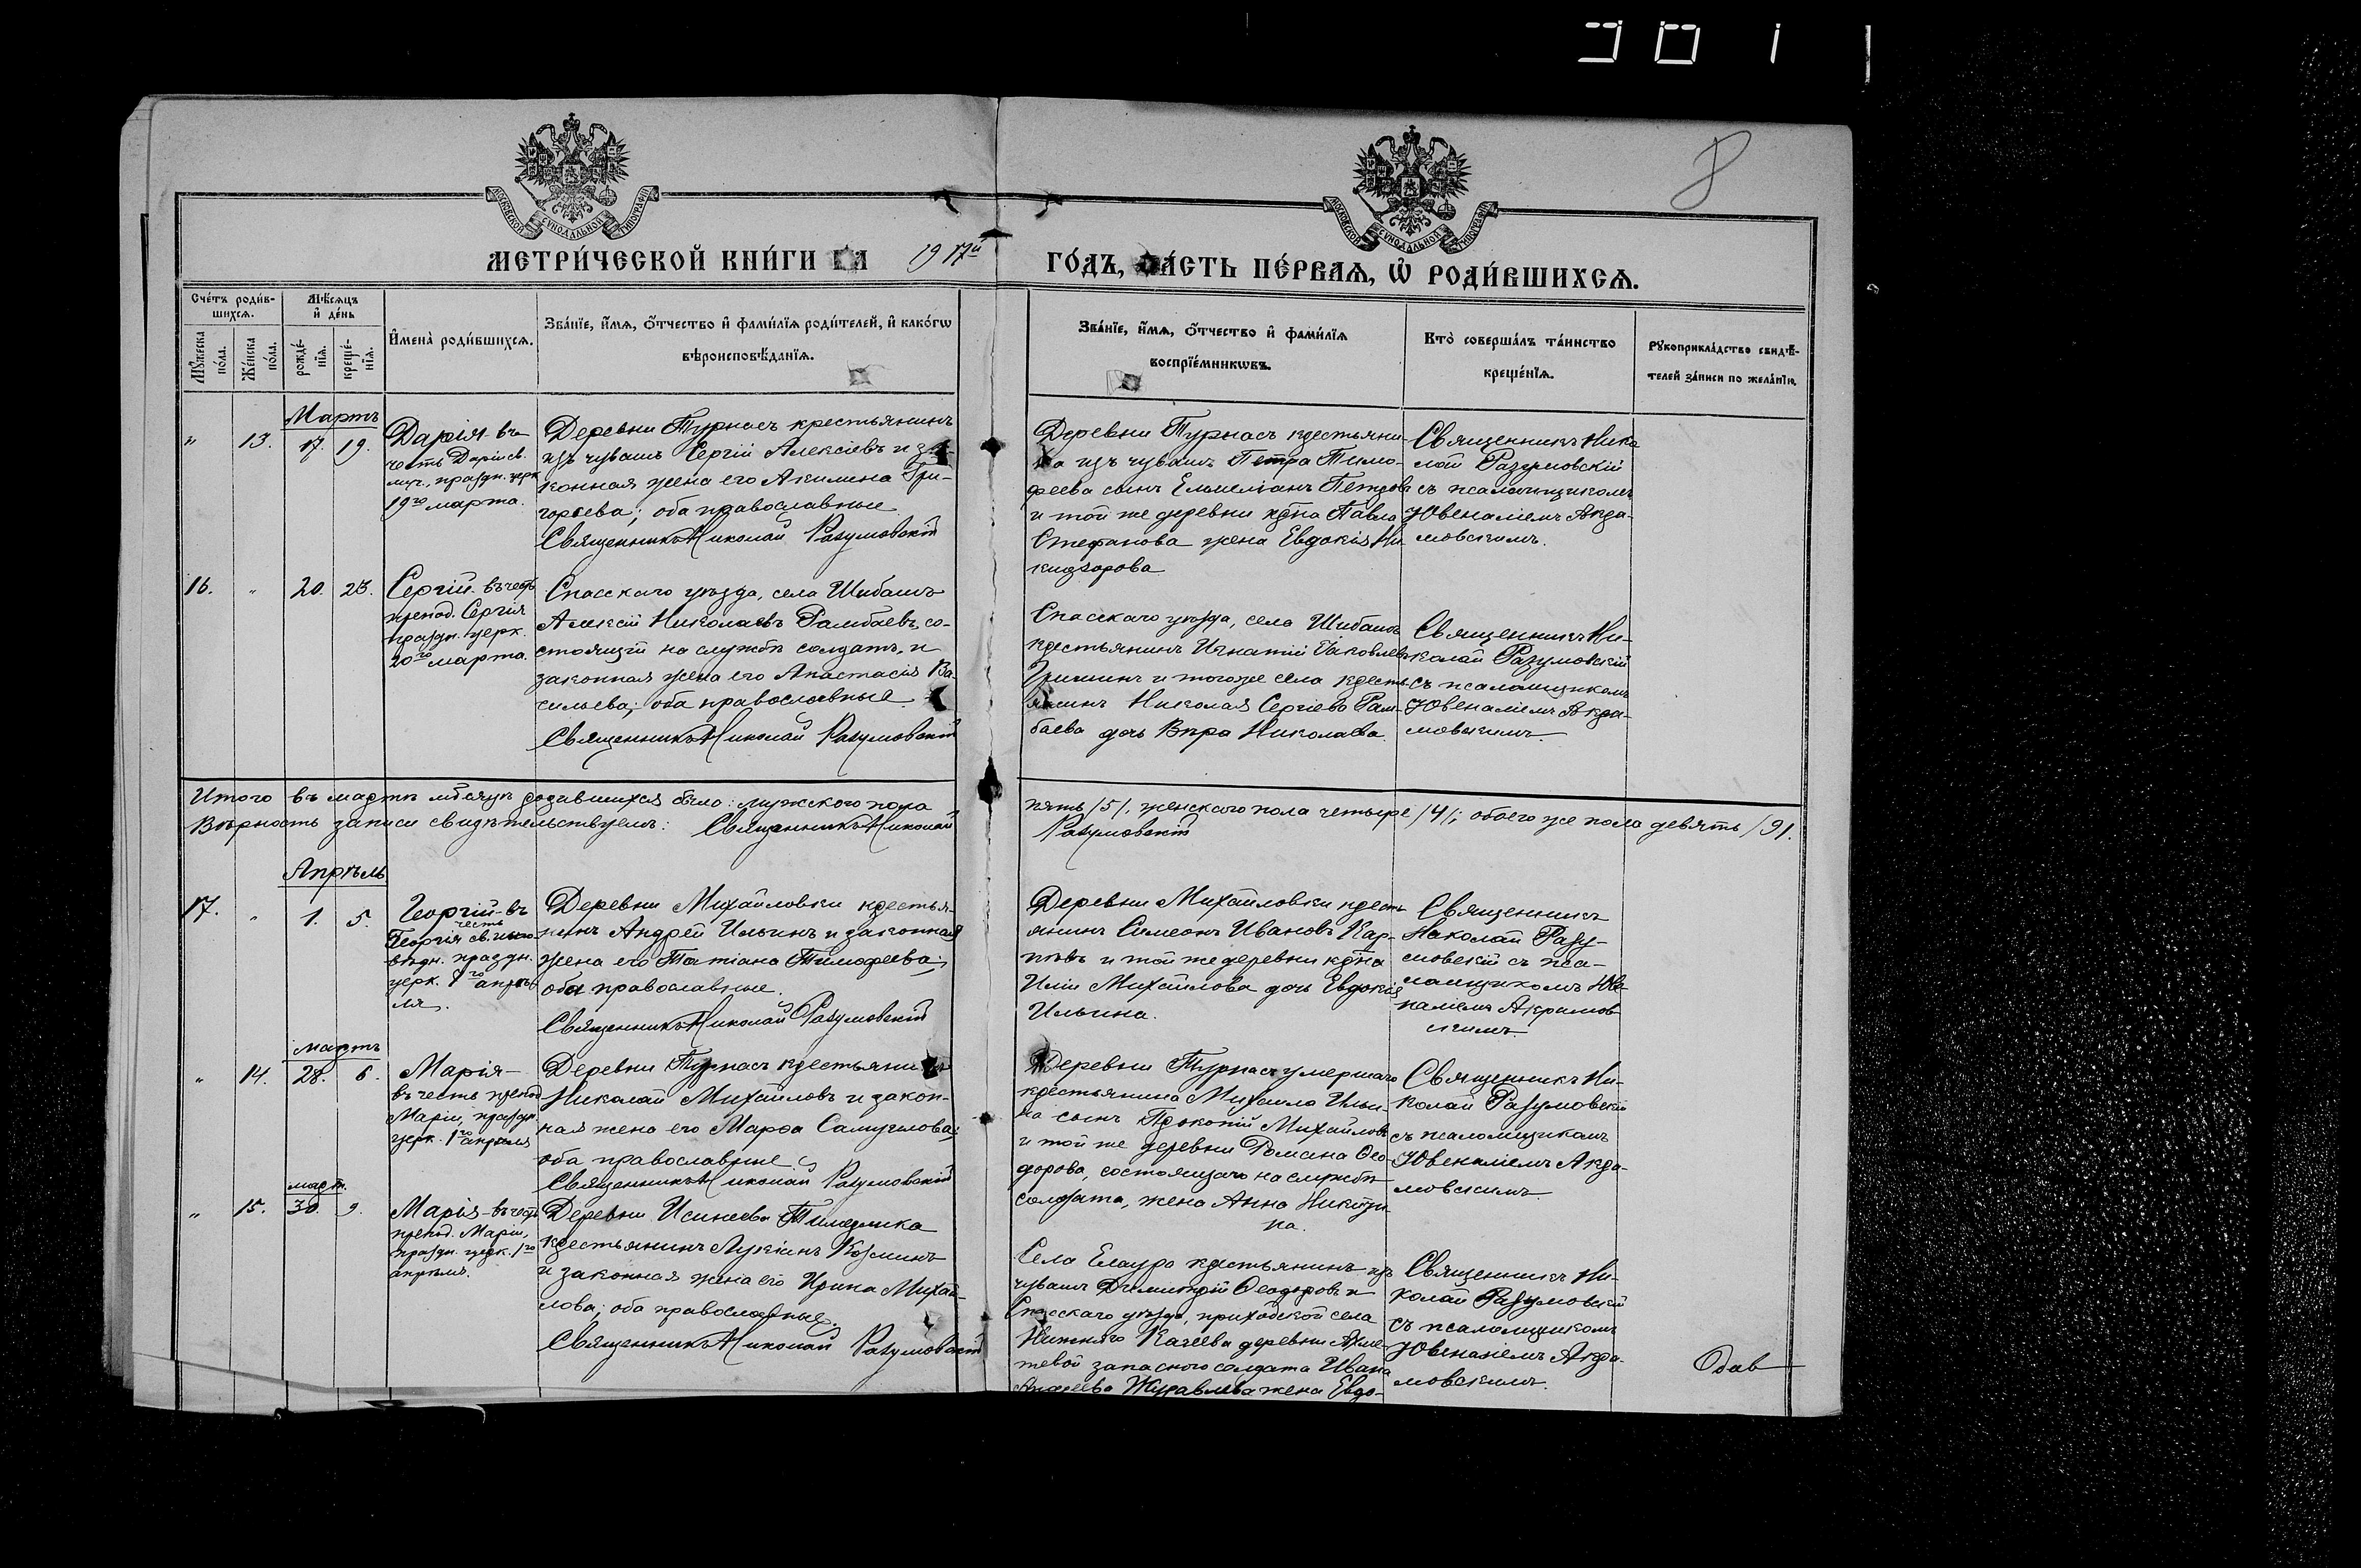 8
МОСКОВСКОЙ СѴНОДАЛЬНОЙ ТИПОГРАФІИ
МОСКОВСКОЙ СѴНОДАЛЬНОЙ ТИПОГРАФІИ
МЕТРИ́ЧЕСКОЙ КНИ́ГИ НА 1917й ГО́ДЪ, ЧА́СТЬ ПЕ́РВАѦ, Ѡ РОДИ́ВШИХСѦ.
Сче́тъ роди́в-
шихсѧ.
Мꙋ́жеска
по́ла.
Же́нска
по́ла.
Мѣ́сѧцъ
и҆ де́нь
рожде́-
нїѧ.
креще́-
нїѧ.
И҆мена̀ роди́вшихсѧ.
Зва́нїе, и҆́мѧ, ѻ҆́тчество и҆ фамі́лїѧ роди́телей, и҆ како́гѡ
вѣроисповѣ́данїѧ.
Зва́нїе, и҆́мѧ, ѻ҆́тчество и҆ фамі́лїѧ
воспрїе́мникѡвъ.
Кто̀ соверша́лъ та́инство
креще́нїѧ.
Рꙋкоприкла́дство свидѣ́-
телей за́писи по жела́нїю.
Мартъ
" 13. 17. 19.
Дарія въ
честь Даріи св.
муч., праздн. церк
19го марта.
Деревни Турнасъ крестьянинъ
изъ чувашъ Сергій Алексіевъ и за-
конная жена его Акилина Гри-
горьева; оба православные.
Священникъ Николай Разумовскій
Деревни Турнасъ крестьяни-
на изъ чувашъ Петра Тимо-
феева сынъ Емиліанъ Петровъ
и той же деревни кр̃на Павла
Стефанова жена Евдокія Ни
кифорова
Священникъ Нико
лай Разумовскій
съ псаломщикомъ
Ювеналіемъ Акра-
мовскимъ.
16. " 20. 23.
Сергій. въ честь
препод. Сергія
праздн. церк.
20го марта.
Спасскаго уѣзда, села Шибашъ
Алексій Николаевъ Рамбаевъ, со-
стоящій на службѣ солдатъ, и
законная жена его Анастасія Ва-
сильева; оба православные
Священникъ Николай Разумовскій
Спасскаго уѣзда, села Шибашъ
крестьянинъ Игнатій Іаковлевъ
Гришинъ и тогоже села кресть-
янинъ Николая Сергіева Рам-
баева дочь Вѣра Николаева.
Священникъ Ни-
колай Разумовскій
съ псаломщикомъ
Ювеналіемъ Акра-
мовскимъ.
Итого въ мартѣ мѣсяцѣ родившихся было: мужского пола пять /5/, женскаго пола четыре /4/; обоего же пола девять /9/.
Вѣрность записи свидѣтельствуемъ: Священникъ Николай Разумовскій
Апрѣль
17. " 1. 5.
Георгій-въ
честь
Георгія св. испо-
вѣдн. праздн.
церк. 7го апрѣ-
ля.
Деревни Михайловки крестья-
нинъ Андрей Ильинъ и законная
жена его Татіана Тимофеева;
оба православные.
Священникъ Николай Разумовскій
Деревни Михайловки кресть
янинъ Симеонъ Ивановъ Кар-
повъ и той же деревни кр̃на
Иліи Михайлова дочь Евдокія
Ильина.
Священникъ
Николай Разу-
мовскій съ пса-
ломщикомъ Юве-
наліемъ Акрамов
скимъ.
мартъ
" 14. 28. 6.
Марія-
въ честь препод
Маріи, праздн.
церк. 1го апрѣля
Деревни Турнасъ крестьянинъ
Николай Михайловъ и закон-
ная жена его Марфа Самуилова;
оба православные.
Священникъ Николай Разумовскій
Деревни Турнасъ умершаго
крестьянина Михаила Ильи-
на сынъ Прокопій Михайловъ
и той же деревни Романа Ѳео-
дорова, состоящаго на службѣ
солдата, жена Анна Никити
на.
Священникъ Ни-
колай Разумовскій
съ псаломщикомъ
Ювеналіемъ Акра-
мовскимъ.
март.
" 15. 30. 9.
Марія-въ честь
препод. Маріи,
праздн. церк. 1го
апрѣля.
Деревни Исинеева
крестьянинъ Лукіанъ Козминъ
и законная жена его Ирина Михай-
лова; оба православные.
Священникъ Николай Разумовскій
Села Елаура крестьянинъ изъ
чувашъ Димитрій Ѳеодоровъ и
Спасскаго уѣзда, приходской села
Нижняго Качеева деревни
тевой запасного солдата Ивана
Андреева Журавлева жена Евдо-
Священникъ Ни-
колай Разумовскій
съ псаломщикомъ
Ювеналіемъ Акра-
мовскимъ.